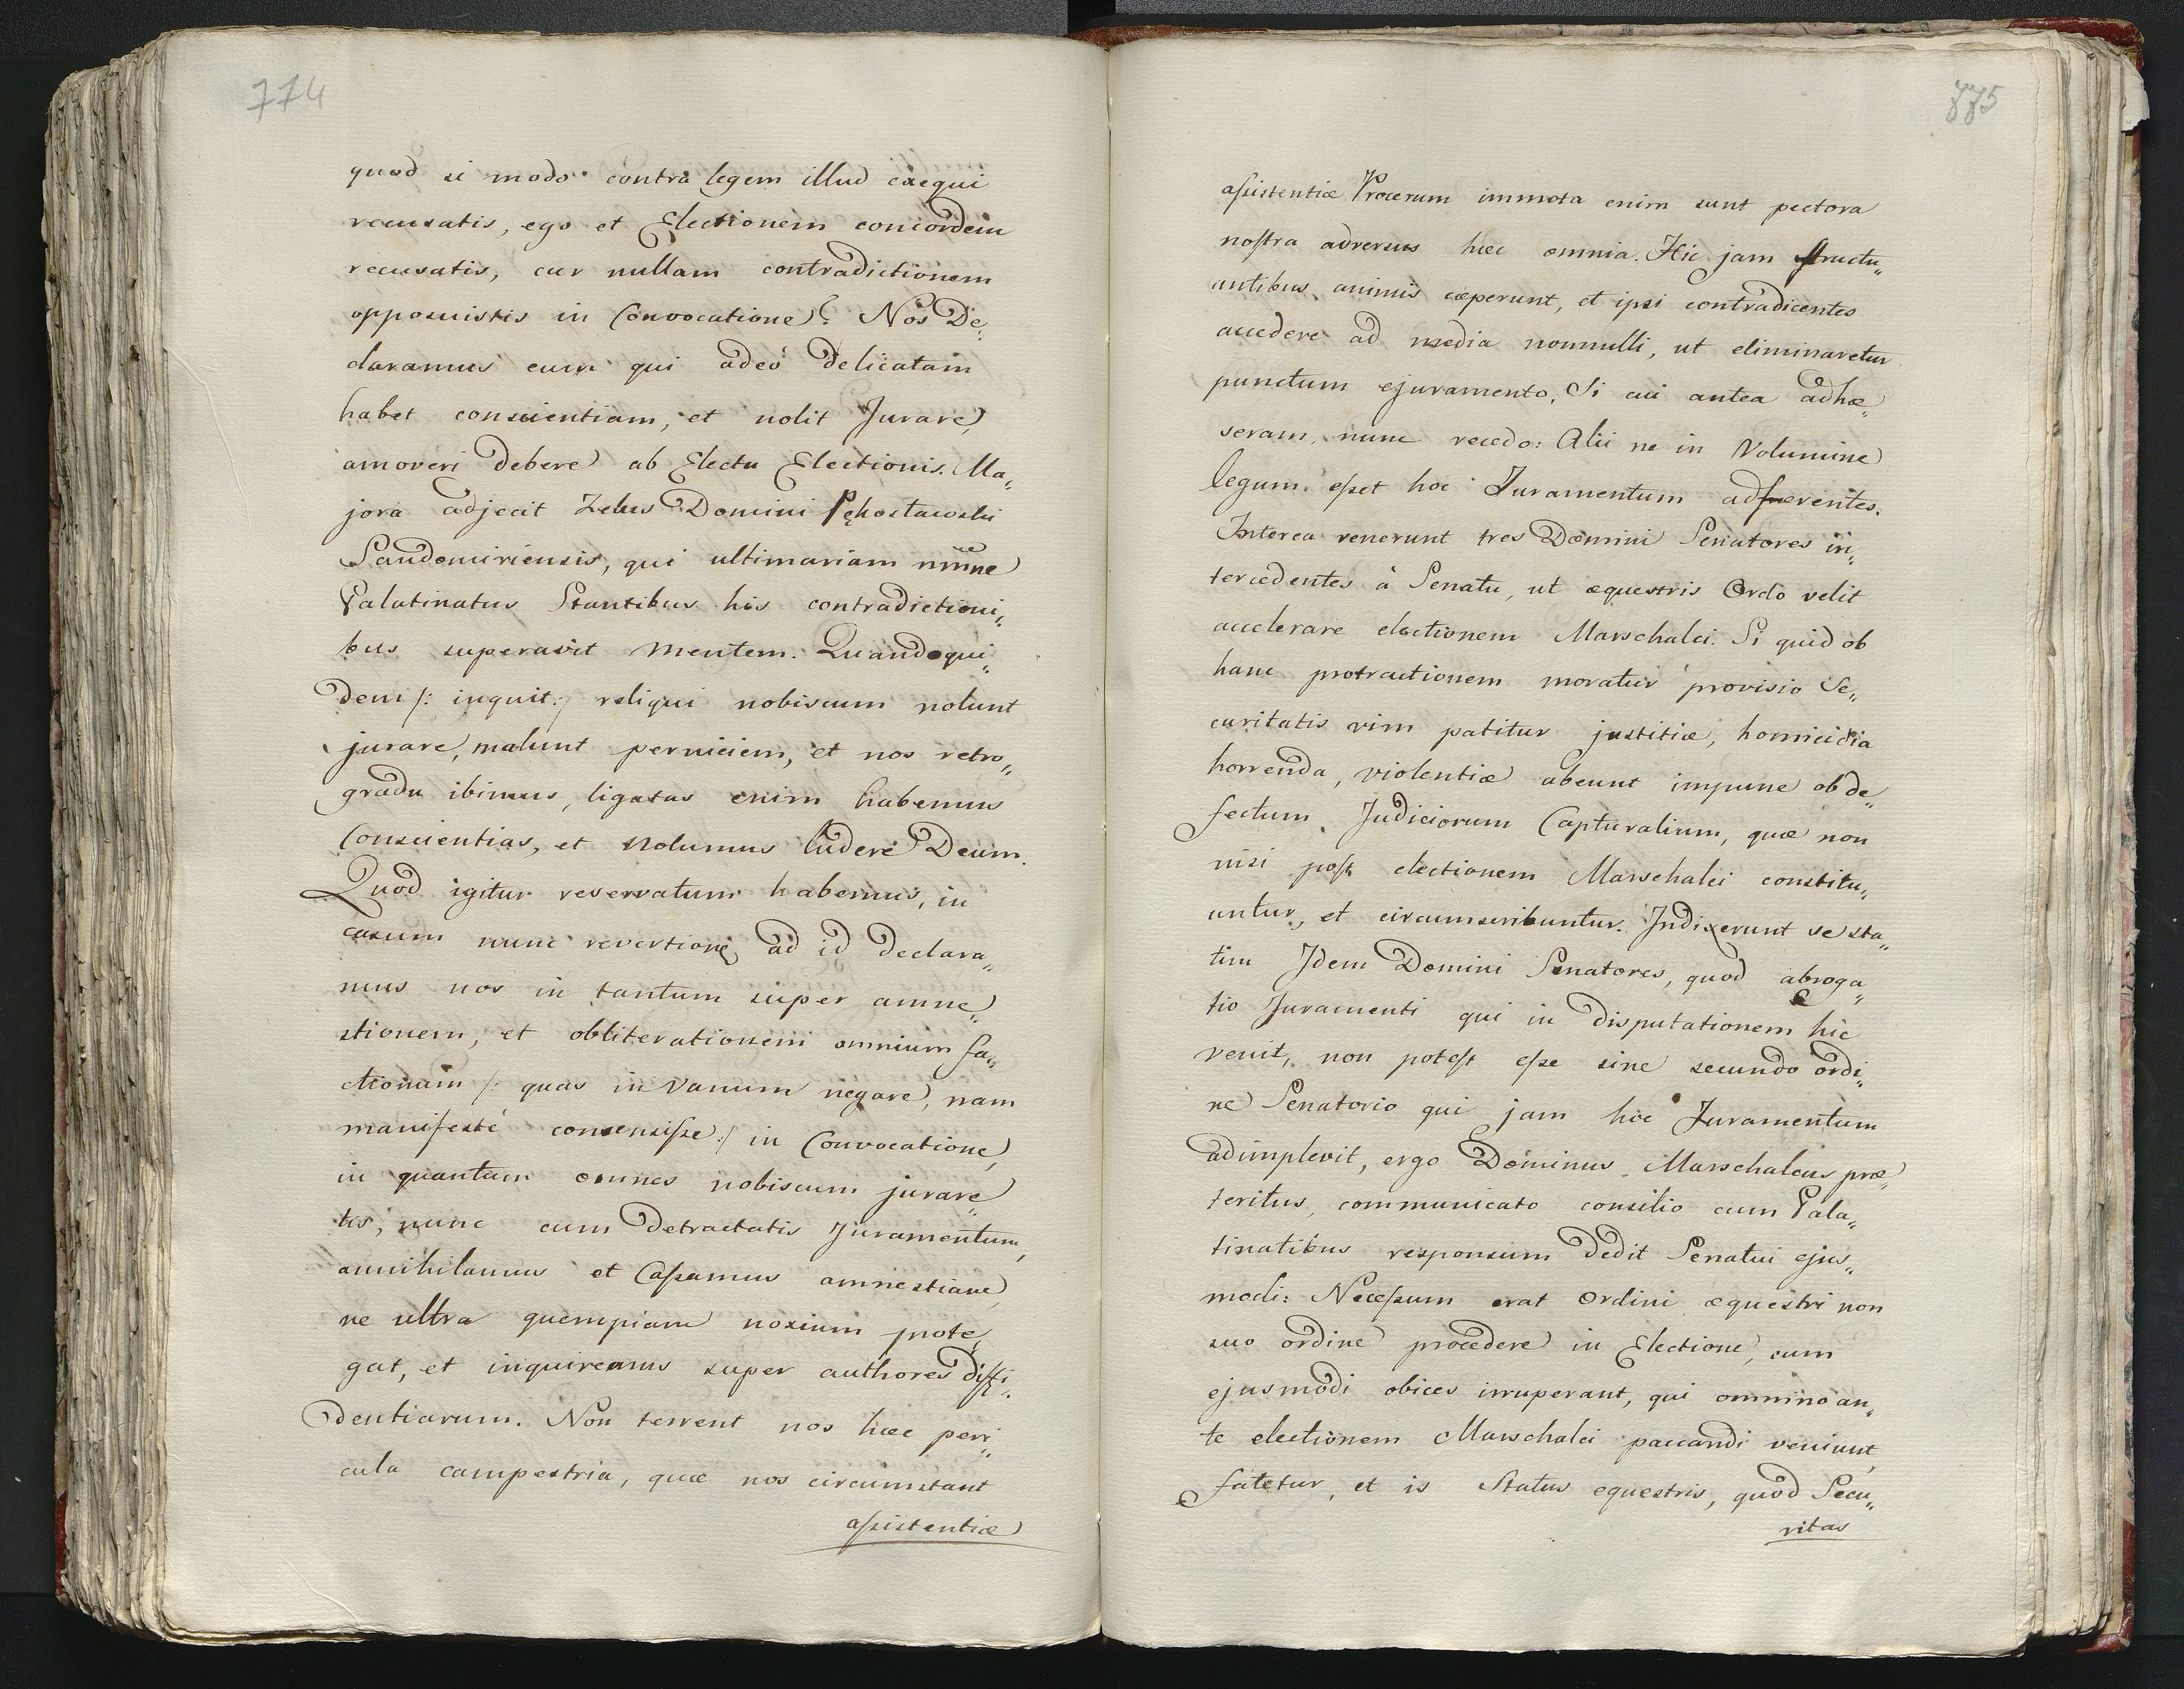 774
quod si modo contra legem illud exequi
recusatis, ego et Electionem concordem
recusatis, cur nullam contradictionem
opposuistis in Convocatione? Nos De„
claramus eum qui adeó delicatam
habet conscientiam, et nolit Jurare,
amoveri debere ab Electu Electionis. Ma„
jora adjecit Zelus Domini Pękosławski
Sandomiriensis, qui ultimariam
Palatinatus Stantibus his contradictioni„
bus superavit mentem. Quandoqui„
dem /: inquit :/ reliqui nobiscum nolunt
jurare, malunt perniciem, et nos retro„
gradu ibimus, ligatas enim habemus
Conscientias, et nolumus ludere Deum.
Quod igitur reservatum habemus, in
casum nunc revertionis ad id declara„
mus nos in tantum super amne„
stionem, et obliterationem omnium fa„
ctionum /: quas in vanum negare, nam
manifesté consensiſse :/ in Convocatione,
in quantum omnes nobiscum jurare„
tis, nunc cum detractatis Juramentum,
annihilamus et Caſsamus amnestiam,
ne ultra quempiam noxium prote„
gat, et inquiremus super authores diffi„
dentiarum. Non terrent nos hæc peri„
cula campestria, quæ nos circumstant
aſsistentiæ
775
aſsistentiæ Procerum immota enim sunt pectora
noſtra adversus hæc omnia. Hic jam fluctu„
antibus animis cæperunt, et ipsi contradicentes
accedere ad media nonnulli, ut eliminaretur
punctum ejuramento, Si cui antea adhæ„
seram, nunc recedo: Alii ne in Volumine
legum eſset hoc Juramentum adferentes.
Interea venerunt tres Domini Senatores in„
tercedentes à Senatu, ut æquestris Ordo velit
accelerare electionem Marschalci. Si quid ob
hanc protractionem moratur provisio Se„
curitatis vim patitur justitiæ, homicidia
horrenda, violentiæ abeunt impune ob de„
fectum Judiciorum Capturalium, quæ non
nisi poſt electionem Marschalci constitu„
untur, et circumscribuntur. Indixerunt se sta„
tim Idem Domini Senatores, quod abroga„
tio Juramenti qui in disputationem hic
venit, non poteſt eſse sine secundo ordi„
ne Senatorio qui jam hoc Juramentum
adimplevit, ergo Dominus Marschalcus præ„
teritus, communicato consilio cum Pala„
tinatibus responsum dedit Senatui ejus„
modi: Neceſsum erat Ordini æquestri non
suo ordine procedere in Electione, cum
ejusmodi obices irruperant, qui omnino an„
te electionem Marschalci paccandi veniunt,
fatetur, et is Status equestris, quod Secu„
ritas